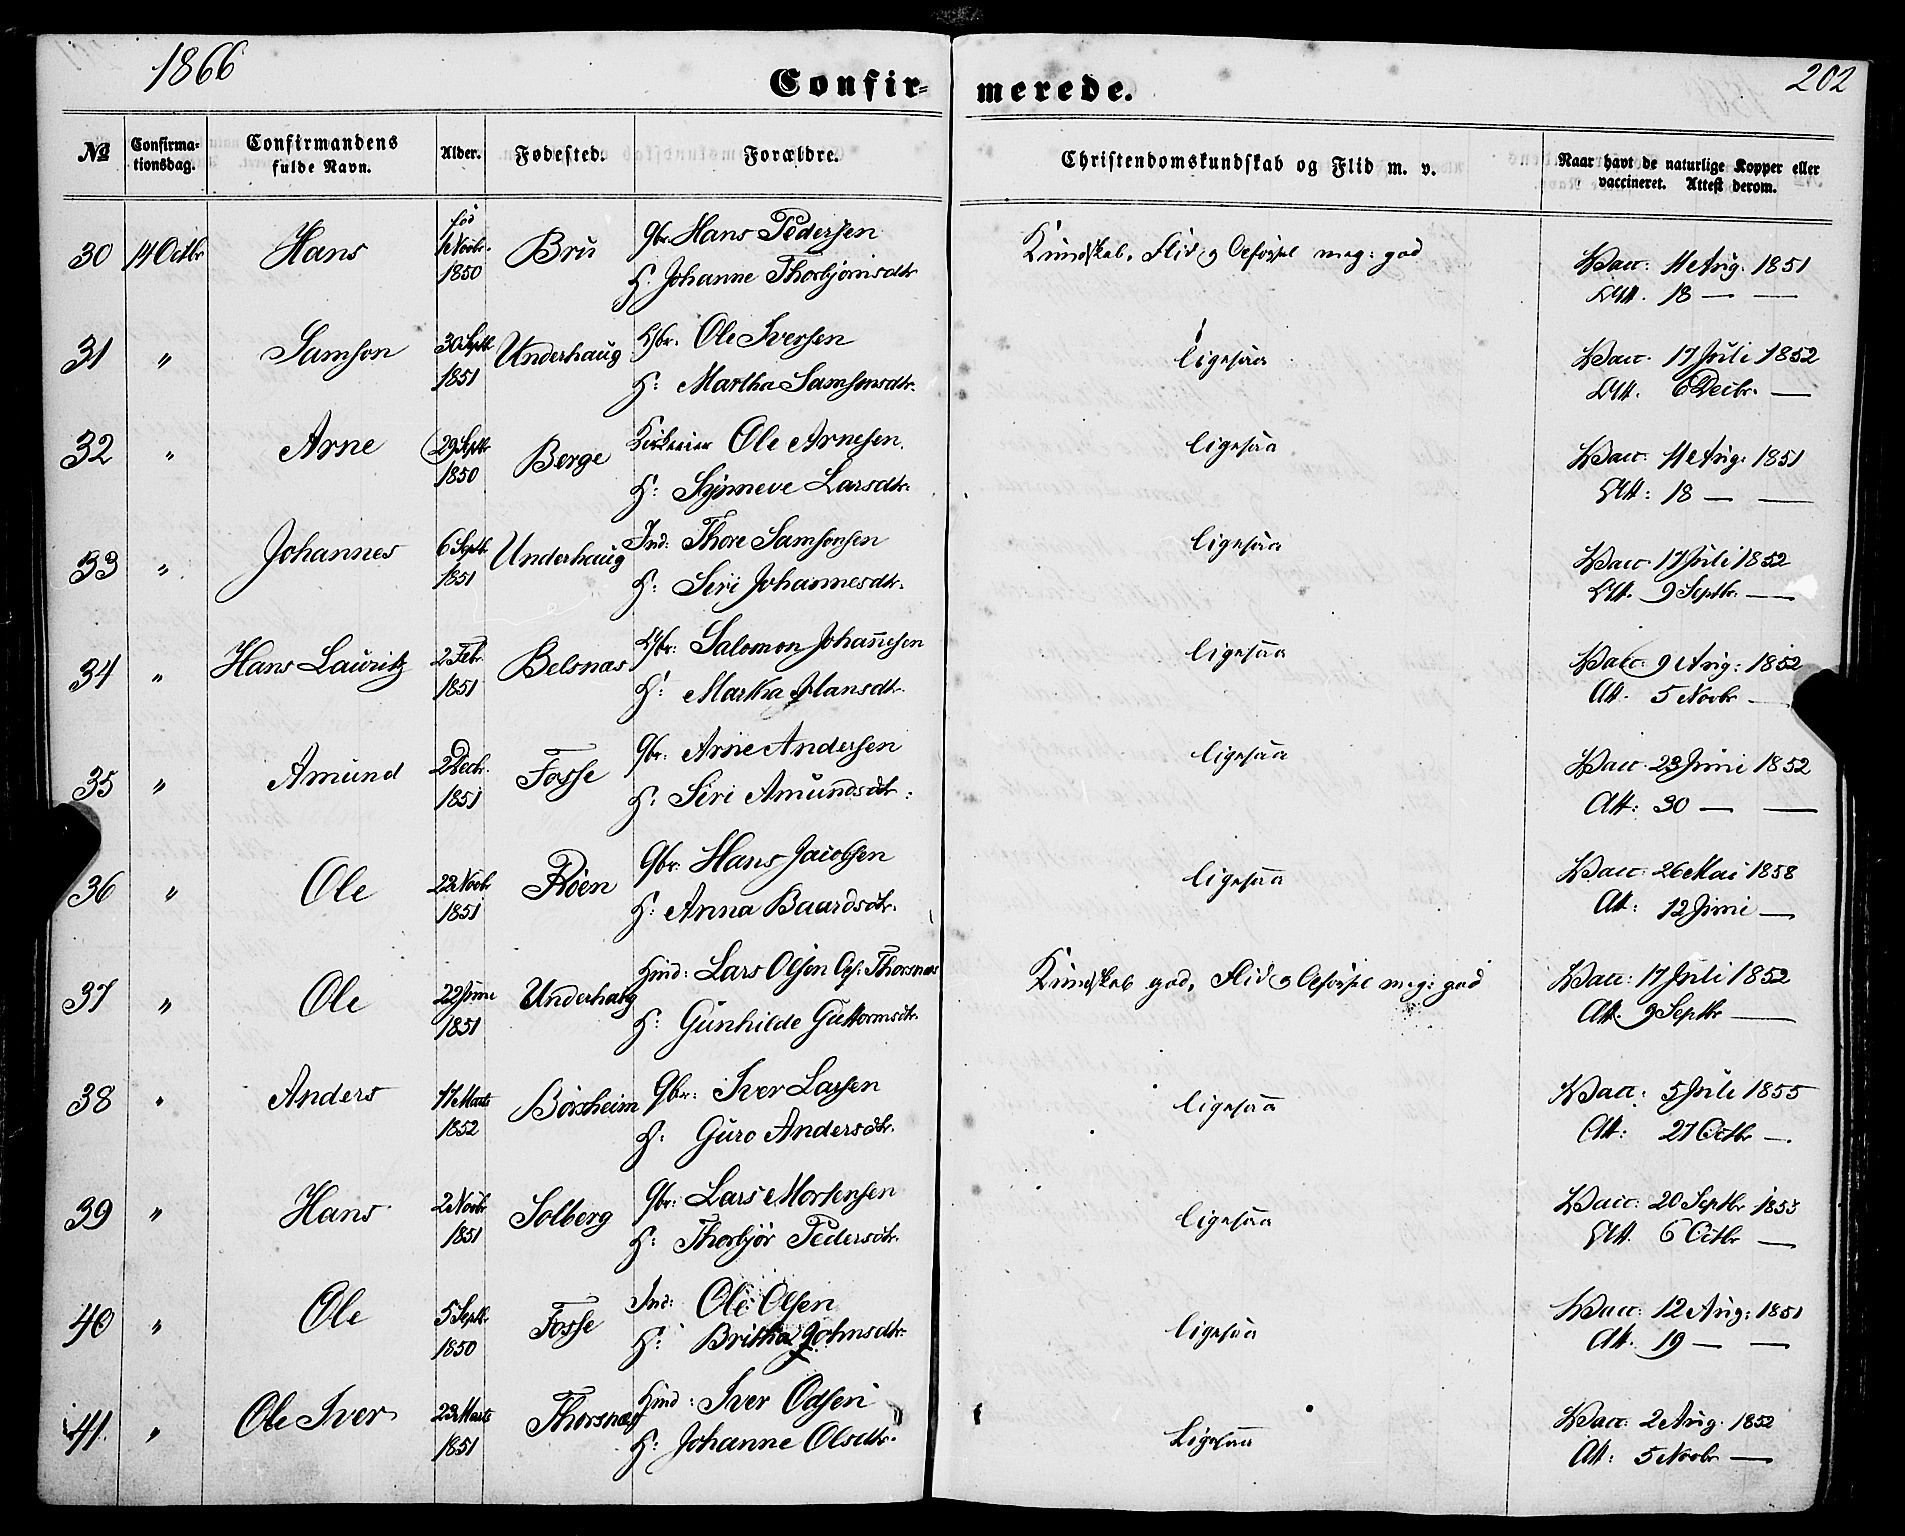 1866
Confir-
merede.
202
No
Confirma-
tionsdag.
Confirmandens
fulde Navn.
Alder.
Fødested.
Forældre.
Christendomskundskab og Flid m. v.
Naar havt de naturlige Kopper eller
vaccineret. Attest derom.
30 14 Octbr Hans født Novbr. 1850 Bru Gbr. Hans Pedersen
H. Johanne Thorbjørnsdtr
Kundskab, Flid og Opførsel meg: god
Vacc: 11 Aug: 1851
Att. 18 — —
31 " Samson 30 Septbr 1851 Underhaug Ole Iversen
H: Martha Samsonsdtr.
ligesaa
Vacc. 17 Juli 1852
Att. 6 Decbr. —
32 " Arne 29 Septbr 1850 Berge Ole Arnesen
H: Synneve Larsdtr.
ligesaa
Vacc: 11 Aug: 1851
Att: 18 — —
33 " Johannes 6 Septb. 1851 Underhaug Ind: Thore Samsonsen
H: Siri Johannesdtr.
ligesaa
Vacc. 17 Juli 1852
Att. 9 Septbr. —
34 " Hans Lauritz 2 Febr 1851 Belsnas Salomon Johannesen
H: Martha Hansdtr.
ligesaa
Vacc: 9 Aug: 1852
Att. 5 Novbr —
35 " Amund 2 Decbr. 1851 Fosse Gbr. Arne Andersen
H: Siri Amundsdtr:
ligesaa
Vacc. 23 Juni 1852
Att: 30 — —
36 " Ole 22 Novbr 1851 Røen Gbr. Hans Jacobsen
H: Anna Baardsdtr.
ligesaa
Vacc: 26 Mai 1858
Att: 12 Juni —
37 " Ole 22 Juni 1851 Underhaug Hmd: Lars Olsen Thorsnæs
H: Gunhilde Guttormsdtr.
Kundskab god, Flid og Opførsel meg: god
Vacc: 17 Juli 1852
Att. 9 Septbr —
38 " Anders 17 Marts 1852 Børsheim Gbr: Iver Larsen
H: Guro Andersdtr.
ligesaa
Vacc: 5 Juli 1855
Att: 21 Octbr —.
39 " Hans 2 Novbr 1851 Solberg Gbr: Lars Mortensen
H: Thorbjør Pedersdtr.
ligesaa
Vacc: 20 Septbr 1853
Att. 6 Octbr —
40 " Ole 5 Septbr. 1850 Fosse Ind: Ole Olsen
H: Britha Johnsdtr.
ligesaa
Vacc: 12 Aug: 1851
Att. 19 — —
41. " Ole Iver 23 Marts 1851 Thorsnæs Hmd: Iver Odsen
H: Johanne Olsdtr.
Ligesaa
Vacc: 2 Aug. 1852
Att: 5 Novbr —